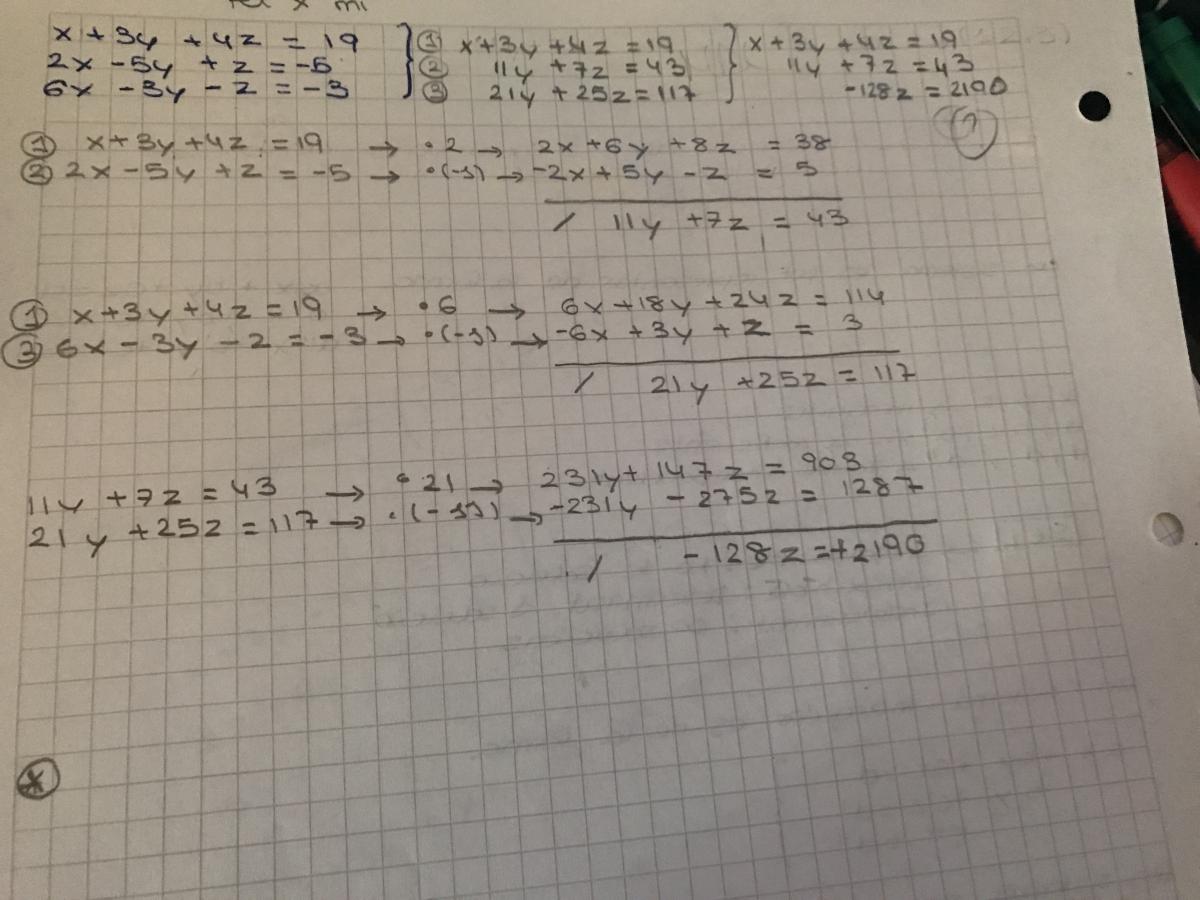 x + 3y + 4z = 19 } ① x + 3y + 4z = 19 } x + 3y + 4z = 19
2x - 5y + z = -5 ② 11y + 7z = 43 11y + 7z = 43
6x - 3y - z = -3 ③ 21y + 25z = 117 -128z = 2190
?
① x + 3y + 4z = 19 → · 2 → 2x + 6y + 8z = 38
② 2x - 5y + z = -5 → · (-1) → -2x + 5y - z = 5
/ 11y + 7z = 43
① x + 3y + 4z = 19 → · 6 → 6x + 18y + 24z = 114
③ 6x - 3y - z = -3 → · (-1) → -6x + 3y + z = 3
/ 21y + 25z = 117
11y + 7z = 43 → · 21 → 231y + 147z = 903
21y + 25z = 117 → · (-11) → -231y - 275z = 1287
/ -128z = +2190
x